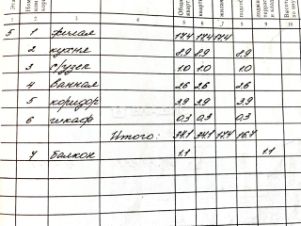 5 1 жилая 17.4 17.4 17.4
2 кухня 8.9 8.9 8.9
3 с/узел 1.0 1.0 1.0
4 ванная 2.6 2.6 2.6
5 коридор 3.9 3.9 3.9
6 шкаф 0.3 0.3 0.3
Итого: 34.1 34.1 17.4 16.7
7 балкон 1.1 1.1